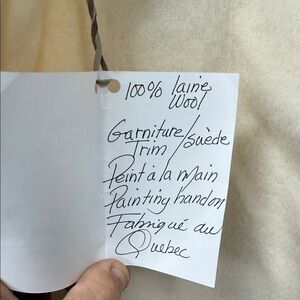 100% laine
Wool
Garniture/suède
Trim
Peint à la main
Painting handon
Fabriqué au
Québec